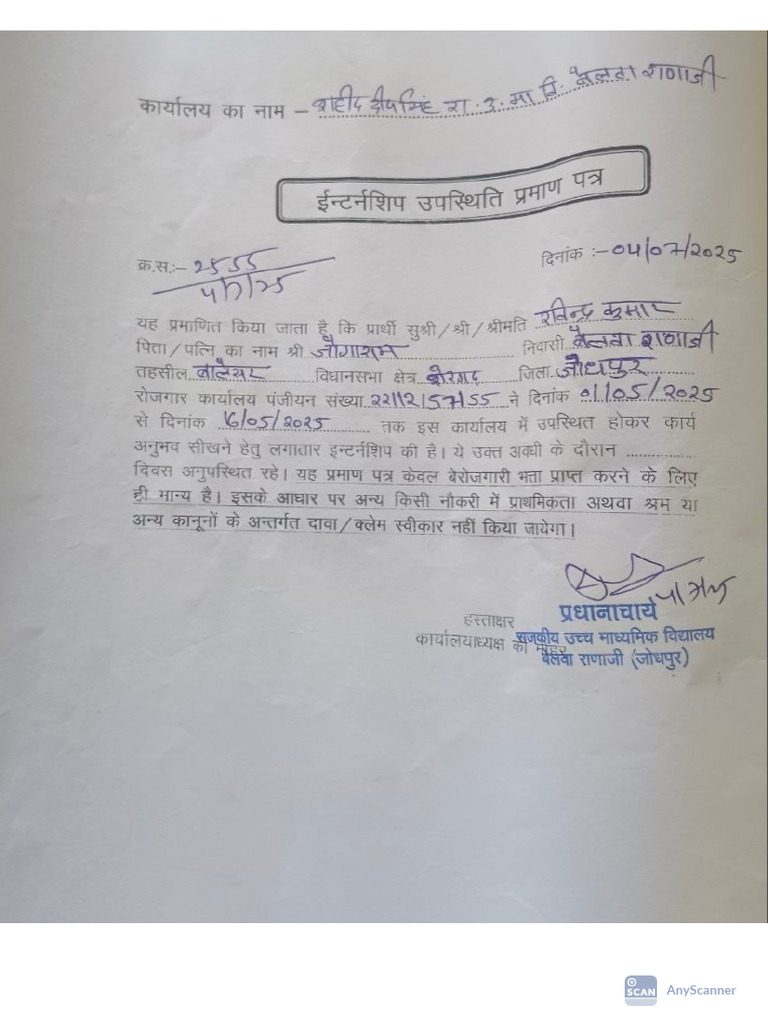 कार्यालय का नाम – शहीद दीपसिंह रा. उ. मा वि. बेलवा राणाजी
ईन्टर्नशिप उपस्थिति प्रमाण पत्र
क्र.स.:– 2555 दिनांक :– 04/07/2025
4/7/25
यह प्रमाणित किया जाता है कि प्रार्थी सुश्री/श्री/श्रीमति रविन्द्र कुमार
पिता/पत्नि का नाम श्री जोगाराम निवासी बेलवा राणाजी
तहसील बालेसर विधानसभा क्षेत्र शेरगढ जिला जोधपुर
रोजगार कार्यालय पंजीयन संख्या ने दिनांक 01/05/2025
से दिनांक 16/05/2025 तक इस कार्यालय में उपस्थित होकर कार्य
अनुभव सीखने हेतु लगातार इन्टर्नशिप की है। ये उक्त अवधी के दौरान ..............
दिवस अनुपस्थित रहे। यह प्रमाण पत्र केवल बेरोजगारी भत्ता प्राप्त करने के लिए
ही मान्य है। इसके आधार पर अन्य किसी नौकरी में प्राथमिकता अथवा श्रम या
अन्य कानूनों के अन्तर्गत दावा/क्लेम स्वीकार नहीं किया जायेगा।
हस्ताक्षर प्रधानाचार्य
कार्यालयाध्यक्ष की मोहर राजकीय उच्च माध्यमिक विद्यालय
बेलवा राणाजी (जोधपुर)
SCAN AnyScanner